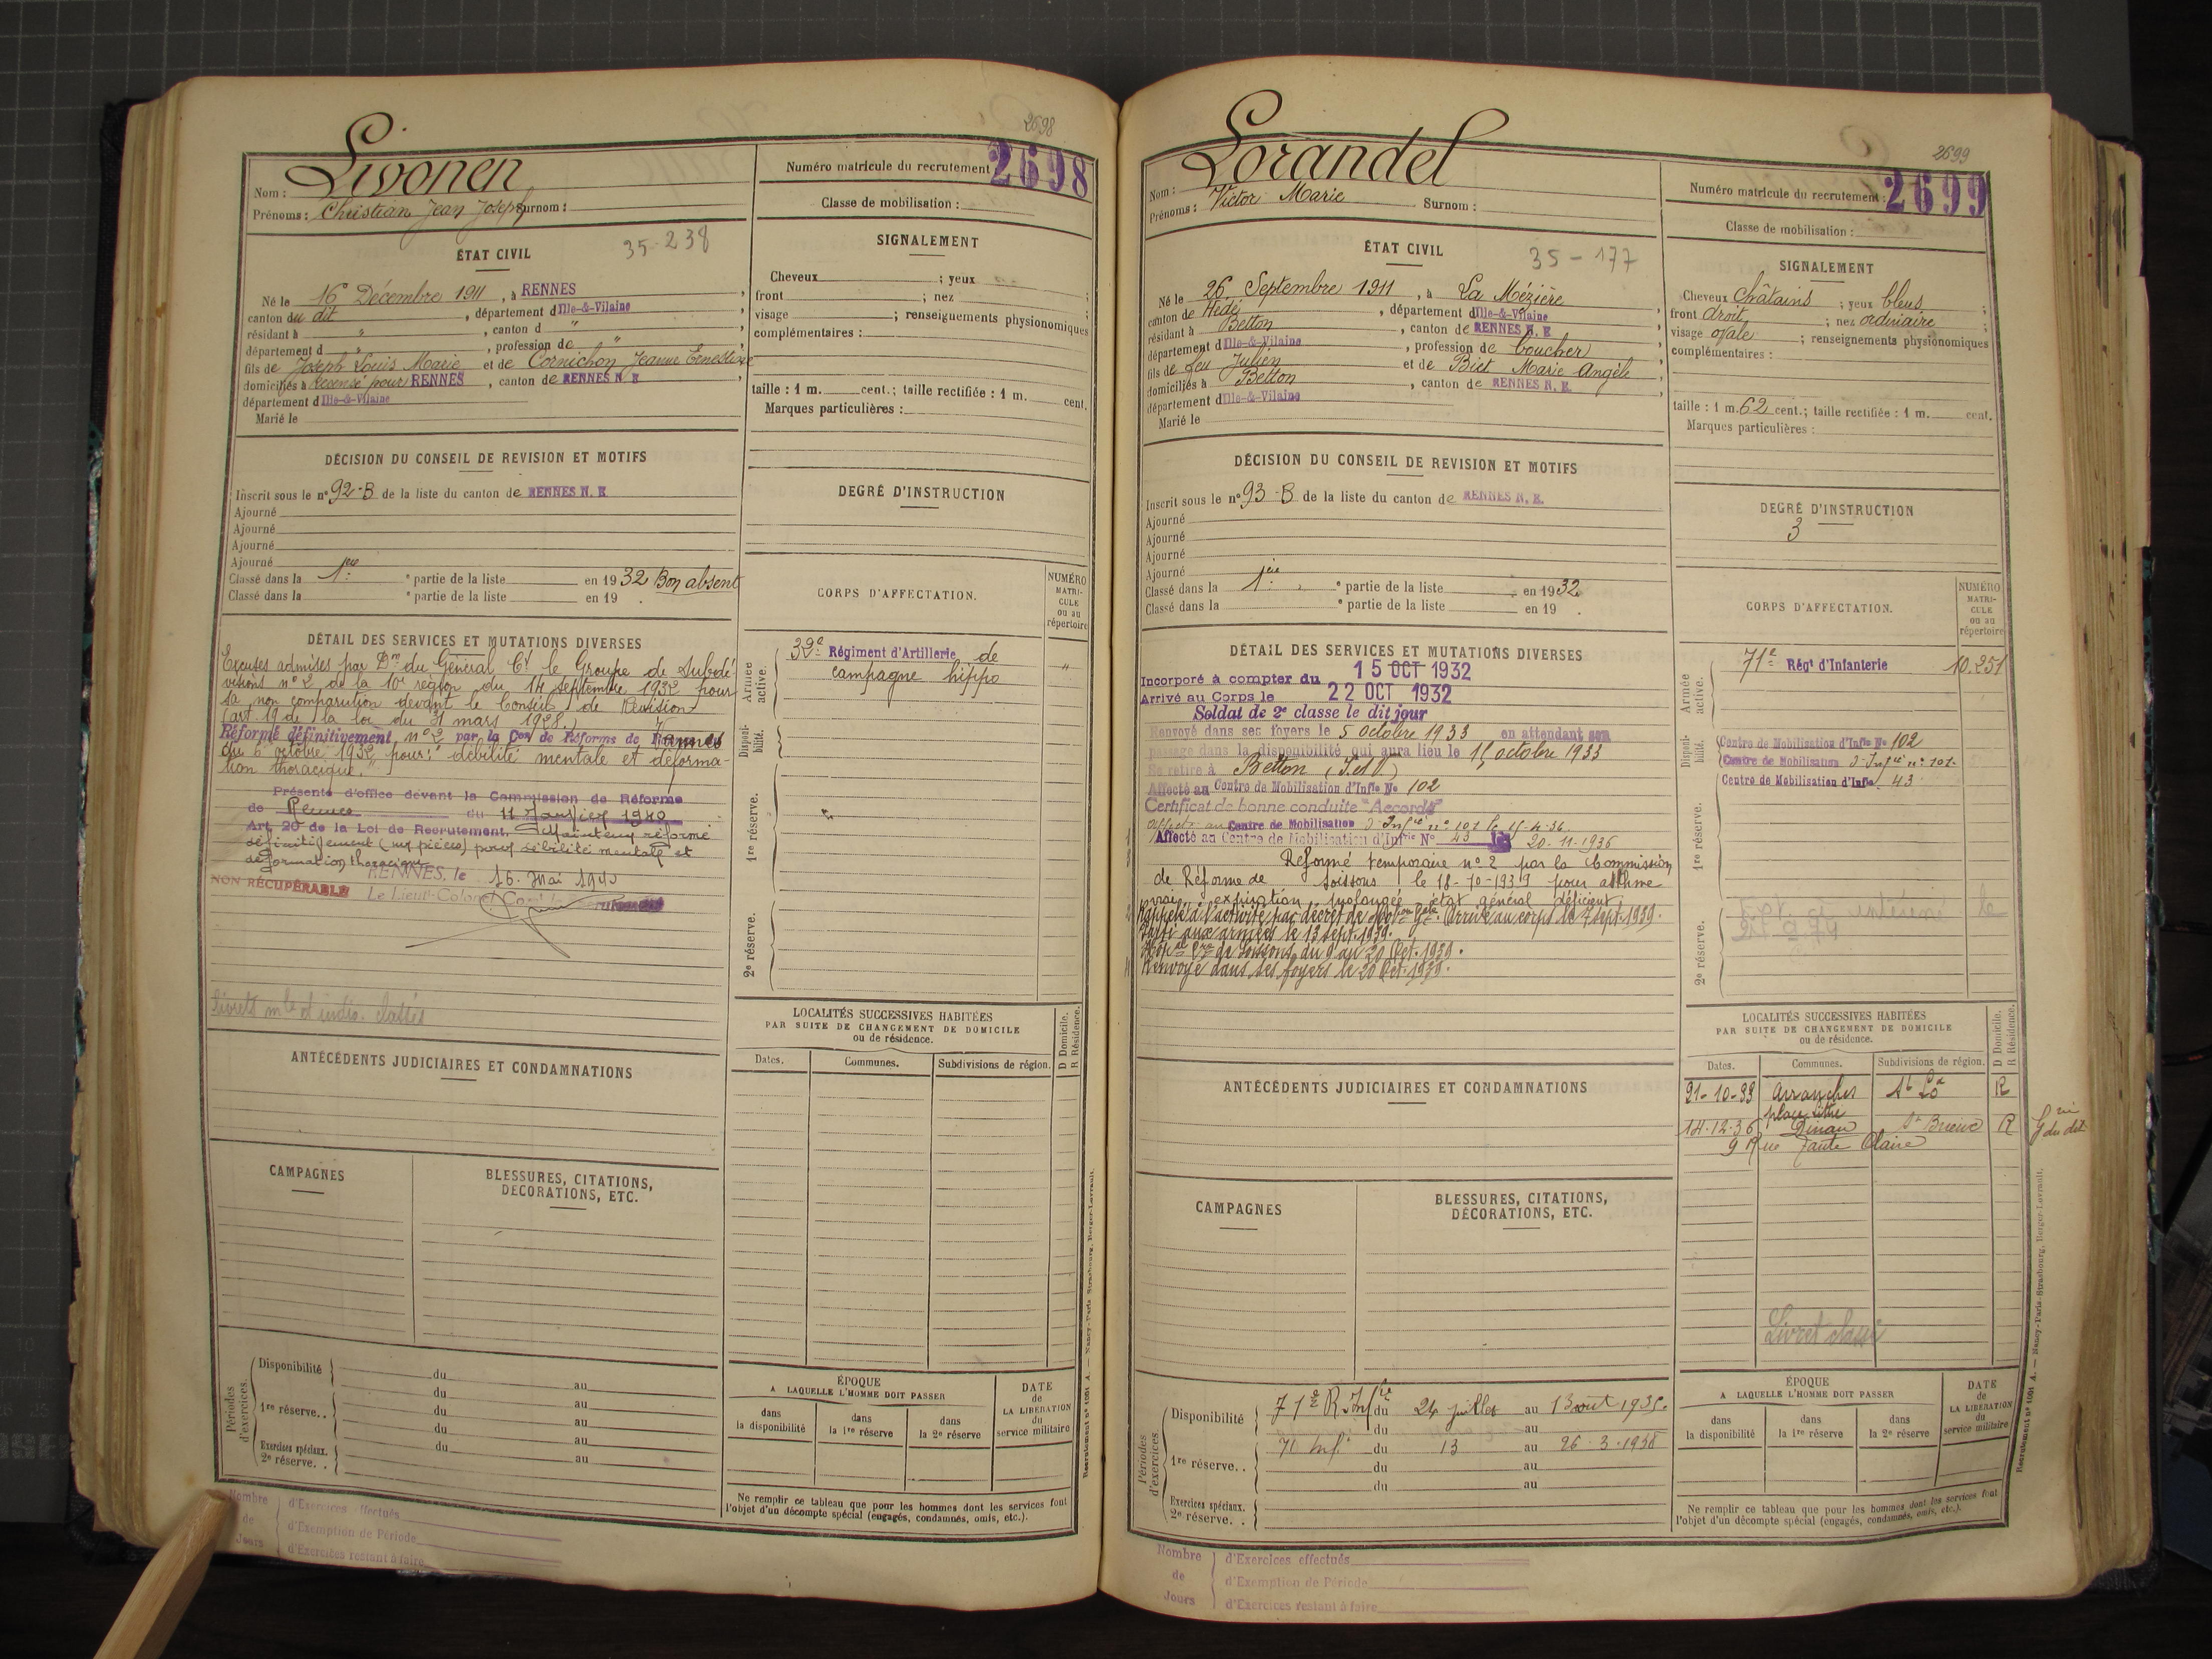 2698
Nom : Livonen
Prénoms : Christian Jean Joseph Surnom :
Numéro matricule du recrutement 2698
Classe de mobilisation :
ÉTAT CIVIL
35-238
Né le 16 Décembre 1911, à RENNES,
canton du dit, département d'Ille-&-Vilaine,
résidant à ", canton d ",
département d , profession de ",
fils de Joseph Louis Marie et de Cornichon Jeanne Ernestine
domiciliés à Recensé pour RENNES, canton de RENNES N. E,
département d'Ille-&-Vilaine
Marié le
SIGNALEMENT
Cheveux ; yeux ;
front ; nez ;
visage ; renseignements physionomiques
complémentaires :
taille : 1 m. cent.; taille rectifiée : 1 m. cent.
Marques particulières :
DÉCISION DU CONSEIL DE REVISION ET MOTIFS
Inscrit sous le n° 92-B de la liste du canton de RENNES N. E
Ajourné
Ajourné
Ajourné
Ajourné
Classé dans la 1ère e partie de la liste en 1932 Bon absent
Classé dans la e partie de la liste en 19 .
DEGRÉ D'INSTRUCTION
CORPS D'AFFECTATION.
NUMÉRO MATRI-CULE ou au répertoire
Armée active.
39e Régiment d'Artillerie de
campagne hippo
"
Disponibilité.
1re réserve.
2e réserve.
DÉTAIL DES SERVICES ET MUTATIONS DIVERSES
Excuses admises par Don du Général Ct le Groupe de Subdi-
visions n° 2 de la 10e région du 14 septembre 1932 pour
sa non comparution devant le Conseil de Révision
(art. 19 de la loi du 31 mars 1928)
Réformé définitivement n° 2 par la Con de Réforme de
du 6 octobre 1932 pour: "débilité mentale et déforma-
tion thoracique."
Présenté d'office devant la Commission de Réforme
de Rennes du 11 Janvier 1940
Art. 20 de la Loi de Recrutement. Maintenu réformé
définitivement (sur pièces) pour débilité mentale et
déformation thoracique
RENNES, le 16 Mai 1940
NON RÉCUPÉRABLE
Le Lieut-Colonel
Livrets mle et indiv. classés
ANTÉCÉDENTS JUDICIAIRES ET CONDAMNATIONS
LOCALITÉS SUCCESSIVES HABITÉES
PAR SUITE DE CHANGEMENT DE DOMICILE
ou de résidence.
Dates. Communes. Subdivisions de région. D Domicile. R Résidence.
CAMPAGNES
BLESSURES, CITATIONS,
DÉCORATIONS, ETC.
Périodes d'exercices.
Disponibilité du au
du au
1re réserve. . du au
du au
Exercices spéciaux.
2e réserve. . du au
ÉPOQUE
A LAQUELLE L'HOMME DOIT PASSER
dans la disponibilité
dans la 1re réserve
dans la 2e réserve
DATE de LA LIBÉRATION du service militaire
Ne remplir ce tableau que pour les hommes dont les services font
l'objet d'un décompte spécial (engagés, condamnés, omis, etc.).
Nombre de Jours
d'Exercices effectués
d'Exemption de Période
d'Exercices restant à faire
Recrutement n° 1061 A. — Nancy-Paris-Strasbourg, Berger-Levrault.
2699
Nom : Lorandel
Prénoms : Victor Marie Surnom :
Numéro matricule du recrutement : 2699
Classe de mobilisation :
ÉTAT CIVIL
35-177
Né le 26 Septembre 1911, à La Mézière,
canton de Hédé, département d'Ille-&-Vilaine,
résidant à Betton, canton de RENNES N. E,
département d'Ille-&-Vilaine, profession de boucher,
fils de feu Julien et de Biet Marie Angèle,
domiciliés à Betton, canton de RENNES N. E.,
département d'Ille-&-Vilaine
Marié le
SIGNALEMENT
Cheveux châtains ; yeux bleus ;
front droit ; nez ordinaire ;
visage ovale ; renseignements physionomiques
complémentaires :
taille : 1 m. 62 cent.; taille rectifiée : 1 m. cent.
Marques particulières :
DÉCISION DU CONSEIL DE REVISION ET MOTIFS
Inscrit sous le n° 93-B de la liste du canton de RENNES N. E.
Ajourné
Ajourné
Ajourné
Ajourné
Classé dans la 1ère e partie de la liste en 1932
Classé dans la e partie de la liste en 19 .
DEGRÉ D'INSTRUCTION
3
CORPS D'AFFECTATION.
NUMÉRO MATRI-CULE ou au répertoire
Armée active.
71e Régt d'Infanterie 10.251
Disponibilité.
Centre de Mobilisation d'Infie No 102
Centre de Mobilisation d'Infie n° 101
Centre de Mobilisation d'Infie 43
1re réserve.
2e réserve.
DÉTAIL DES SERVICES ET MUTATIONS DIVERSES
Incorporé à compter du 15 OCT 1932
Arrivé au Corps le 22 OCT 1932
Soldat de 2e classe le dit jour
Renvoyé dans ses foyers le 5 octobre 1933 en attendant son
passage dans la disponibilité qui aura lieu le 15 octobre 1933
Se retire à Betton (I et V)
Affecté au Centre de Mobilisation d'Infie No 102
Certificat de bonne conduite "Accordé"
Affecté au Centre de Mobilisation d'Infie n° 101 le 15-4-36.
Affecté au Centre de Mobilisation d'Infie No 43 le 20-11-1936
Réformé temporaire n° 2 par la Commission
de Réforme de Soissons le 18-10-1939 pour asthme
vrai, expiration prolongée état général déficient.
Rappelé à l'activité par décret de Mobon Gale. Arrivé au corps le 7 sept. 1939.
Parti aux armées le 13 sept. 1939.
Hopal de Soissons du 9 au 20 Oct. 1939.
Renvoyé dans ses foyers le 20 Oct. 1939.
ANTÉCÉDENTS JUDICIAIRES ET CONDAMNATIONS
LOCALITÉS SUCCESSIVES HABITÉES
PAR SUITE DE CHANGEMENT DE DOMICILE
ou de résidence.
Dates. Communes. Subdivisions de région. D Domicile. R Résidence.
21-10-33 Avranches St Lô R
place Littré
14-12-36 Dinan St Brieuc R
9 Rue Haute Claire
Livret classé
CAMPAGNES
BLESSURES, CITATIONS,
DÉCORATIONS, ETC.
Périodes d'exercices.
Disponibilité 71e R. Infie du 24 juillet au 13 août 1935.
du au
71 Infie du 13 au 26-3-1938
1re réserve. . du au
du au
Exercices spéciaux.
2e réserve. .
ÉPOQUE
A LAQUELLE L'HOMME DOIT PASSER
dans la disponibilité
dans la 1re réserve
dans la 2e réserve
DATE de LA LIBÉRATION du service militaire
Ne remplir ce tableau que pour les hommes dont les services font
l'objet d'un décompte spécial (engagés, condamnés, omis, etc.).
Nombre de Jours
d'Exercices effectués
d'Exemption de Période
d'Exercices restant à faire
Recrutement n° 1061 A. — Nancy-Paris-Strasbourg, Berger-Levrault.